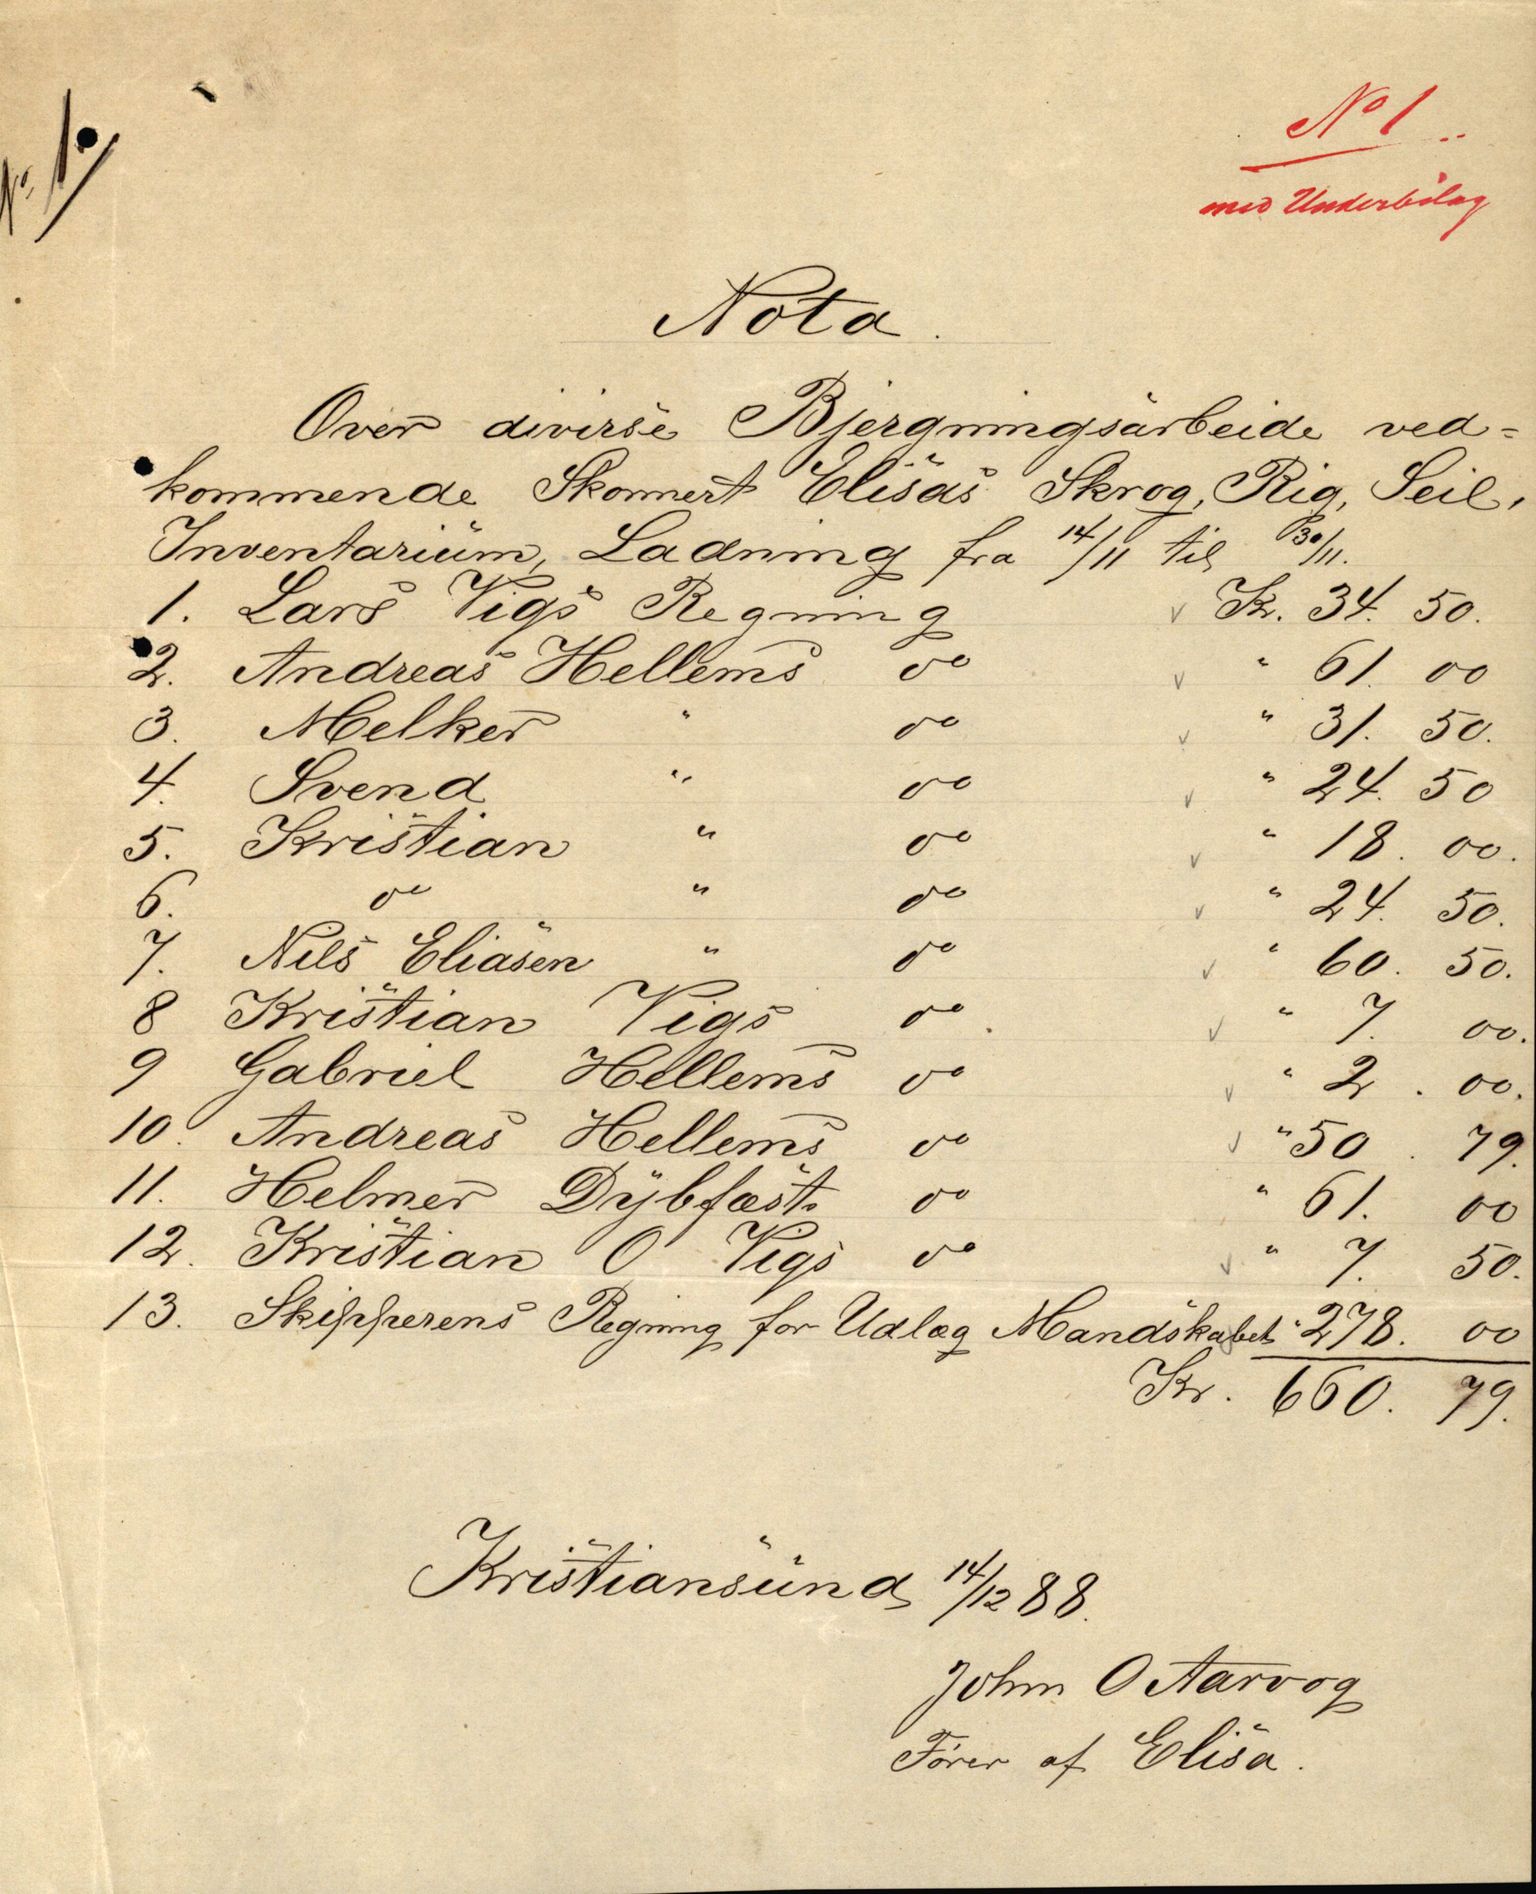 No 1.
No 1
med Underbilag
Nota.
Over diverse Bjergningsarbeide ved=
kommende Skonnert Elisas Skrog, Rig, Seil,
Inventarium, Ladning fra 14/11 til 30/11.
1. Lars Vigs Regning Kr. 34. 50.
2. Andreas Hellems do " 61. 00
3. Melker " do " 31. 50.
4. Svend " do " 24. 50
5. Kristian " do " 18. 00.
6. do " do " 24. 50.
7. Nils Eliasen " do " 60. 50.
8 Kristian Vigs do. " 7. 00.
9 Gabriel Hellems do " 2. 00.
10. Andreas Hellems do " 50. 79.
11. Helmer Dybfæst. do " 61. 00
12. Kristian O Vigs do " 7. 50.
13. Skipperens Regning for Udlæg Mandskabet " 278. 00
Kr. 660. 79.
Kristiansund 14/12 88.
John O Aarvog
Fører af Elisa.